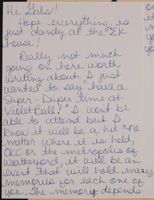 Hi Gals!
Hope everything is
just dandy at the ΣK
house!
Really not much
going on here worth
writing about. I just
wanted to say "have a
Super-Duper time at
Violet Ball!" I wont be
able to attend but I
know it will be a hit no
matter where it is held,
or the metropolis of
Weatherford, it will be an
event that will hold many
memories for each one of
you. The memory depends